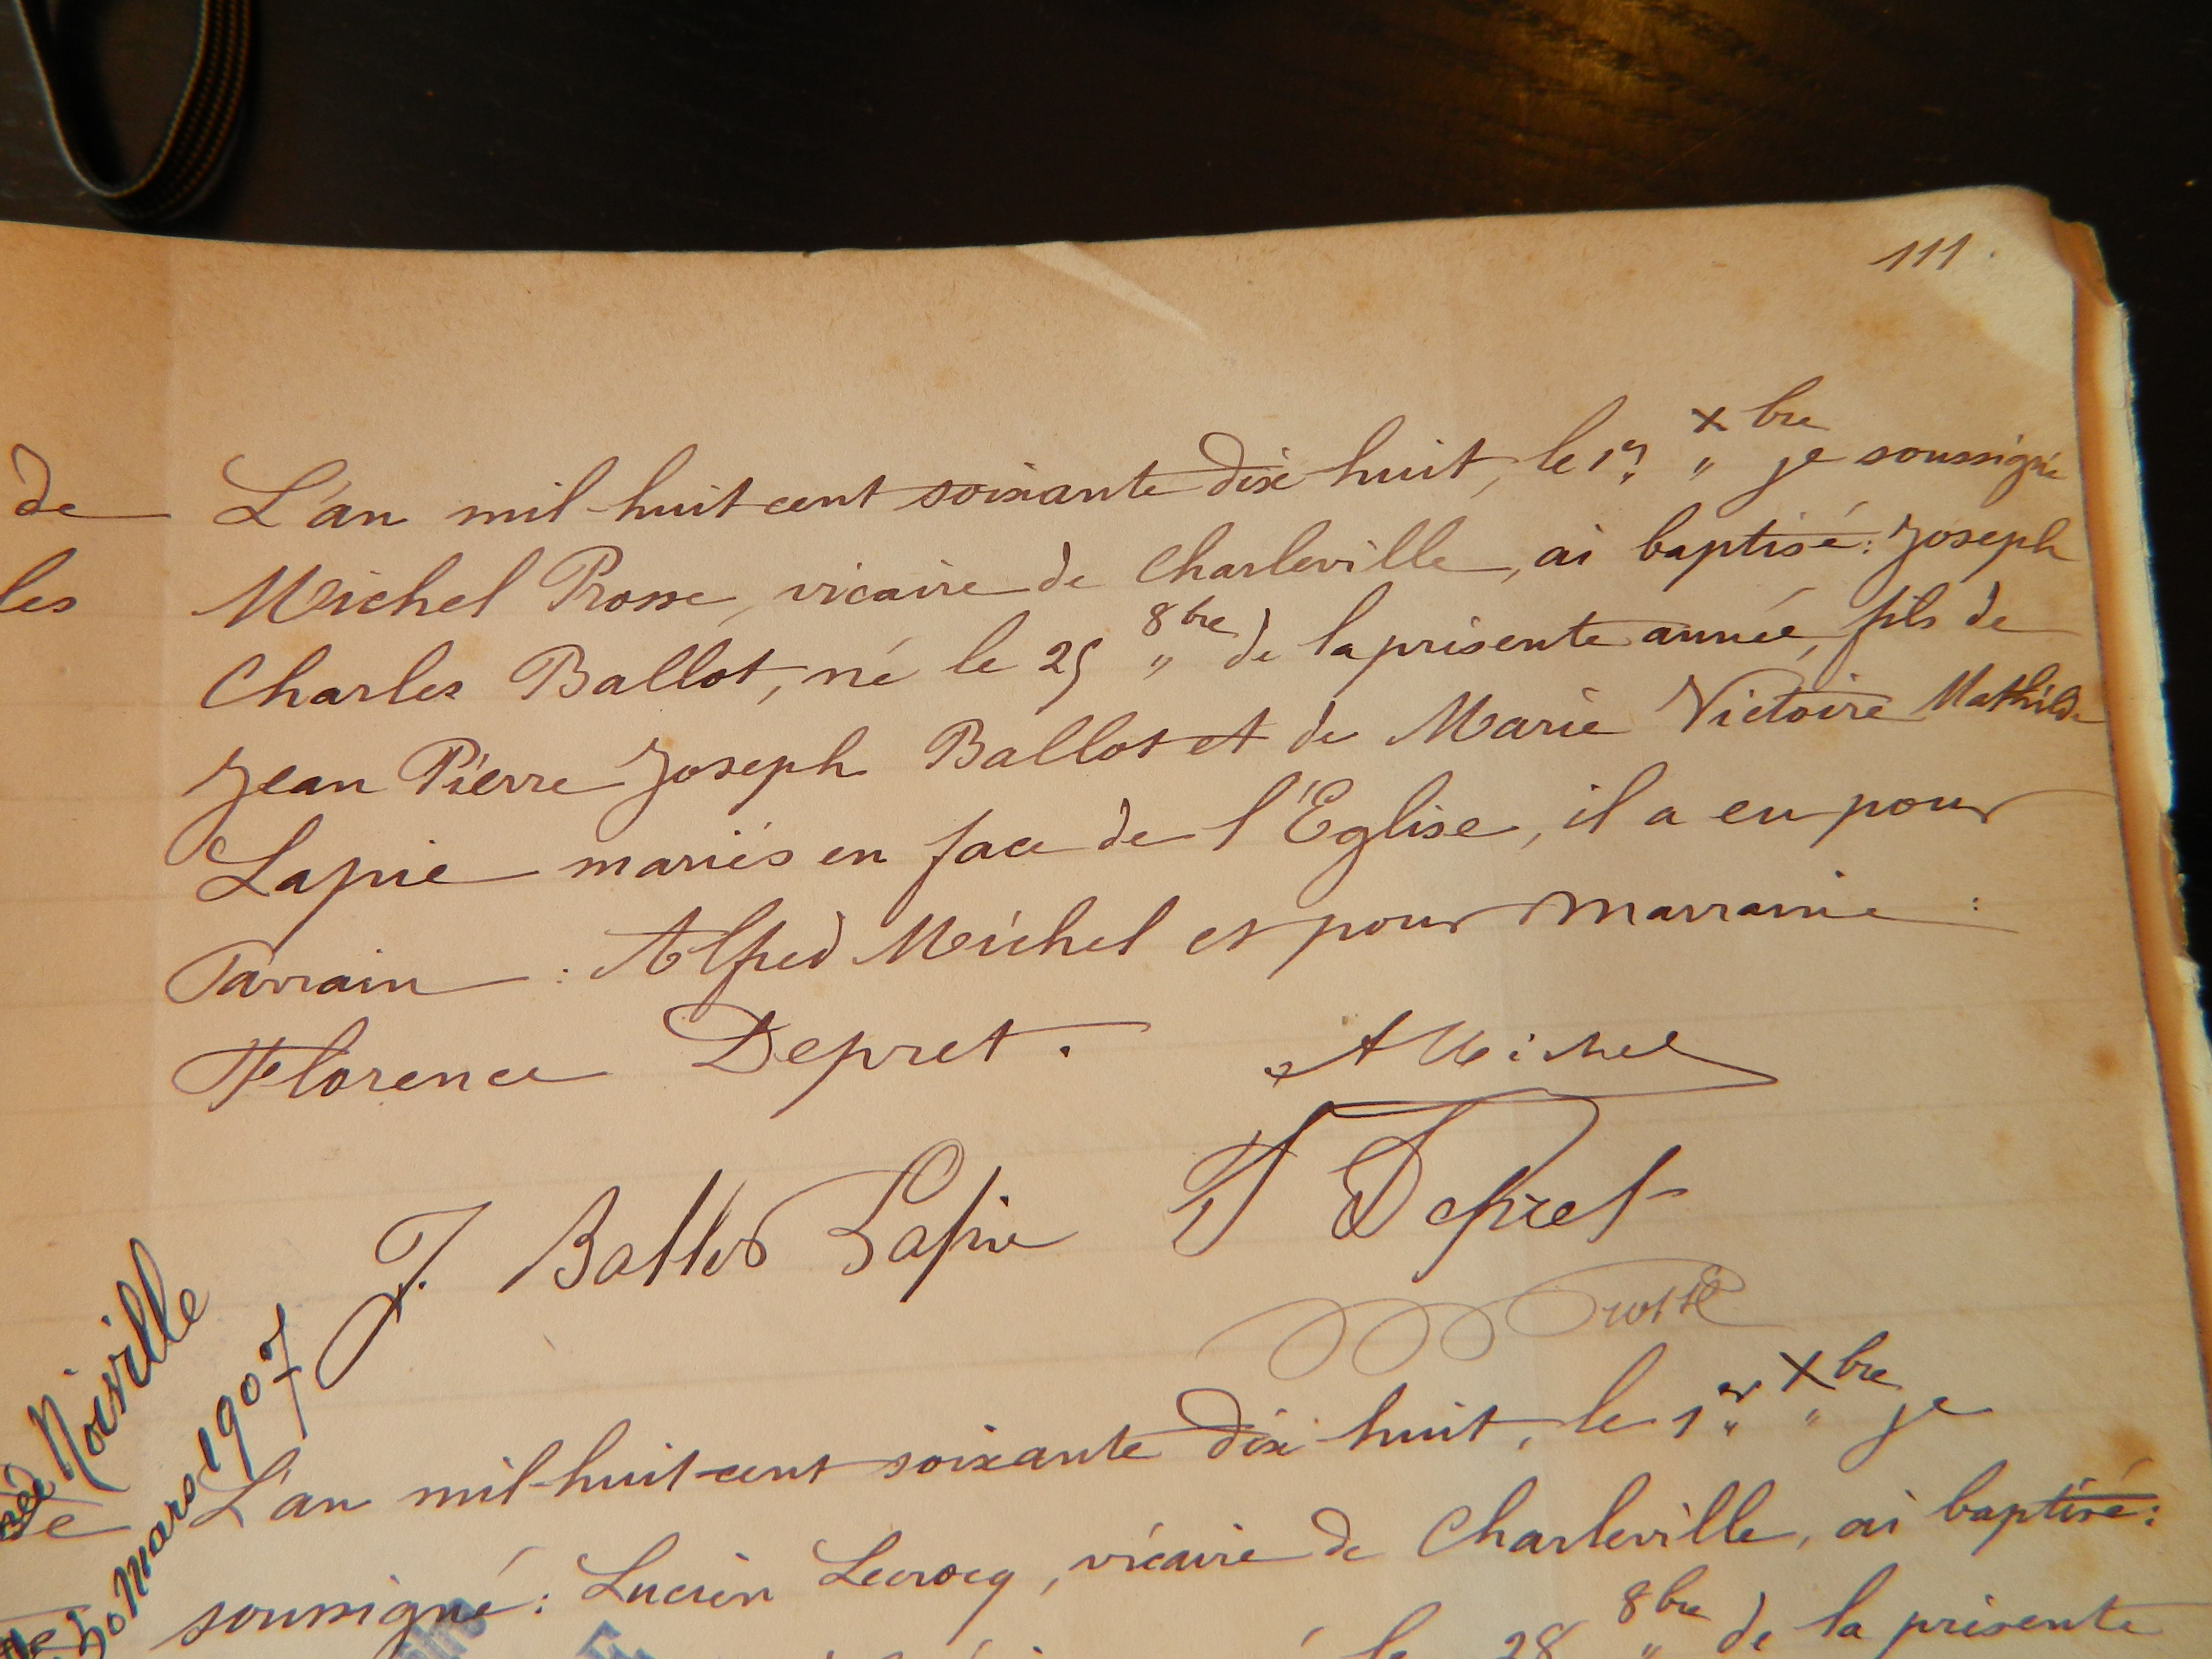 111.
de L'an mil-huit-cent soixante dix huit, le 1er Xbre je soussigné
les Michel Prosse, vicaire de Charleville, ai baptisé: Joseph
Charles Ballot, né le 25 8bre de la présente année, fils de
Jean Pierre Joseph Ballot et de Marie Victoire Mathilde
Lapie mariés en face de l'Eglise, il a eu pour
Parrain : Alfred Michel et pour marraine :
Florence Depret.
A Michel
J. Ballot Lapie F Depret
Prosse
Noiville
30 Mars 1907
L'an mil-huit-cent soixante dix huit, le 1er Xbre je
soussigné: Lucien Lecrocq, vicaire de Charleville, ai baptisé:
le 28 8bre de la présente